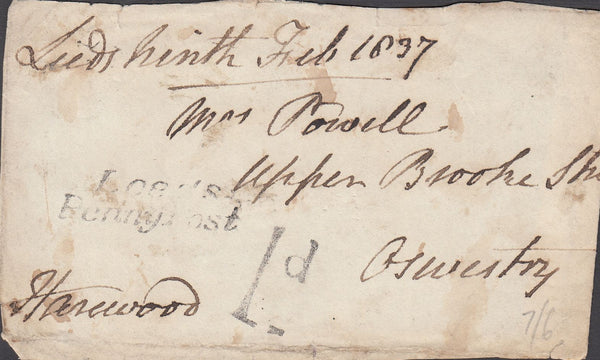 Leeds ninth Feb 1837
Mrs Powell
Upper Brooke
Leeds
Penny Post
Oswestry
1d
Harewood
7/6